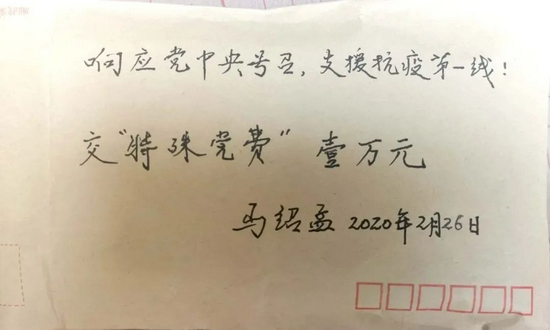 响应党中央号召，支援抗疫第一线！
交“特殊党费”壹万元
马绍孟 2020年2月26日